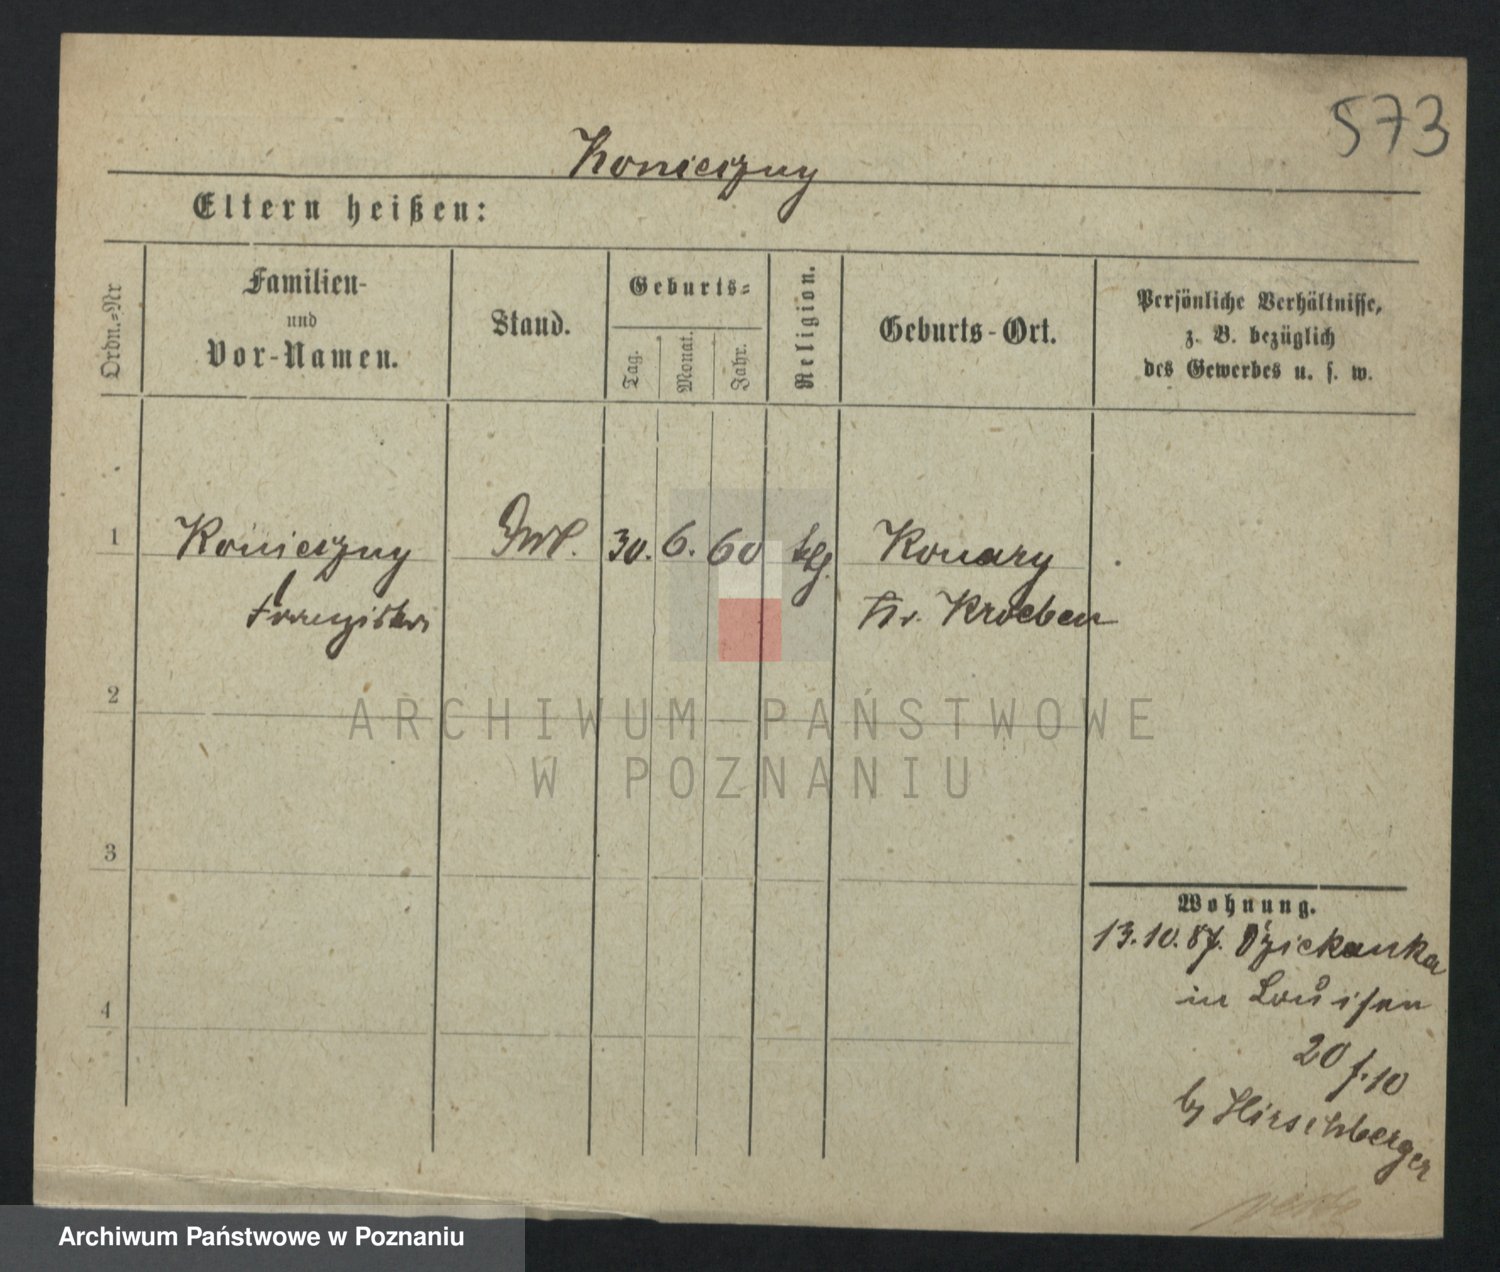 573
Konieczny
Eltern heißen:
Ordn.-Nr
Familien-
und
Vor-Namen.
Stand.
Geburts-
Tag.
Monat.
Jahr.
Religion.
Geburts-Ort.
Persönliche Verhältnisse,
z. B. bezüglich
des Gewerbes u. s. w.
1 Konieczny 30. 6. 60 ktg. Konary
Kr. Kroeben
2
3
4
Wohnung.
13.10.87. Dziekanka
in Louisen
20 f. 10
by Hirschberger
ARCHIWUM PAŃSTWOWE
W POZNANIU
Archiwum Państwowe w Poznaniu